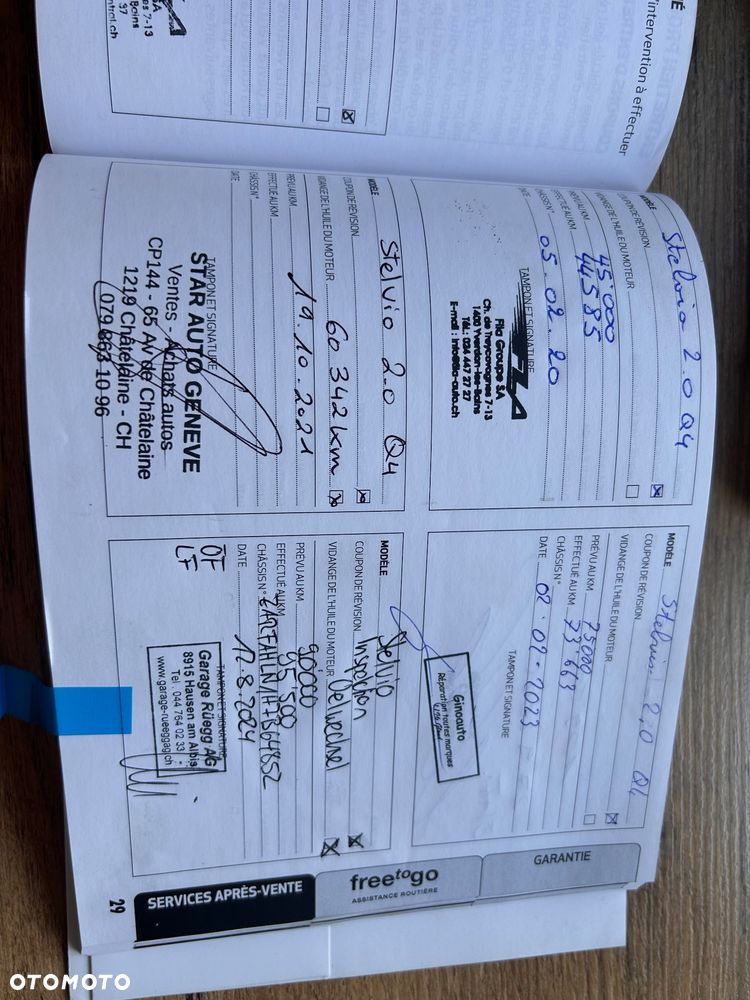 l'intervention à effectuer
MODÈLE Stelvio 2.0 Q4
COUPON DE RÉVISION
VIDANGE DE L'HUILE DU MOTEUR
PRÉVU AU KM 45'000
EFFECTUÉ AU KM 44585
CHÂSSIS N°
DATE 05.02.20
TAMPON ET SIGNATURE
FILA
Fila Groupe SA
Ch. de Treycovagnes 7-13
1400 Yverdon-les-Bains
Tél.: 024 447 27 27
E-mail: info@fila-auto.ch
MODÈLE Stelvio 2.0 Q4
COUPON DE RÉVISION
VIDANGE DE L'HUILE DU MOTEUR
PRÉVU AU KM 75000
EFFECTUÉ AU KM 73'663
CHÂSSIS N°
DATE 02.02.2023
TAMPON ET SIGNATURE
Ginoauto
Réparation toutes marques
MODÈLE Stelvio 2.0 Q4
COUPON DE RÉVISION
VIDANGE DE L'HUILE DU MOTEUR 60342km
PRÉVU AU KM 19.10.2021
EFFECTUÉ AU KM
CHÂSSIS N°
DATE
TAMPON ET SIGNATURE
STAR AUTO GENEVE
Ventes - Achats autos
CP144 - 65 Av de Châtelaine
1219 Châtelaine - CH
079 863 10 96
MODÈLE Stelvio
COUPON DE RÉVISION Inspektion
VIDANGE DE L'HUILE DU MOTEUR Oelwechsel
PRÉVU AU KM 90'000
EFFECTUÉ AU KM 95'500
CHÂSSIS N°
DATE 12.8.2024
TAMPON ET SIGNATURE
ÖF
LF
Garage Rüegg AG
8915 Hausen am Albis
Tel. 044 764 02 33
www.garage-rueeggag.ch
29
SERVICES APRÈS-VENTE
freetogo
ASSISTANCE ROUTIÈRE
GARANTIE
OTOMOTO